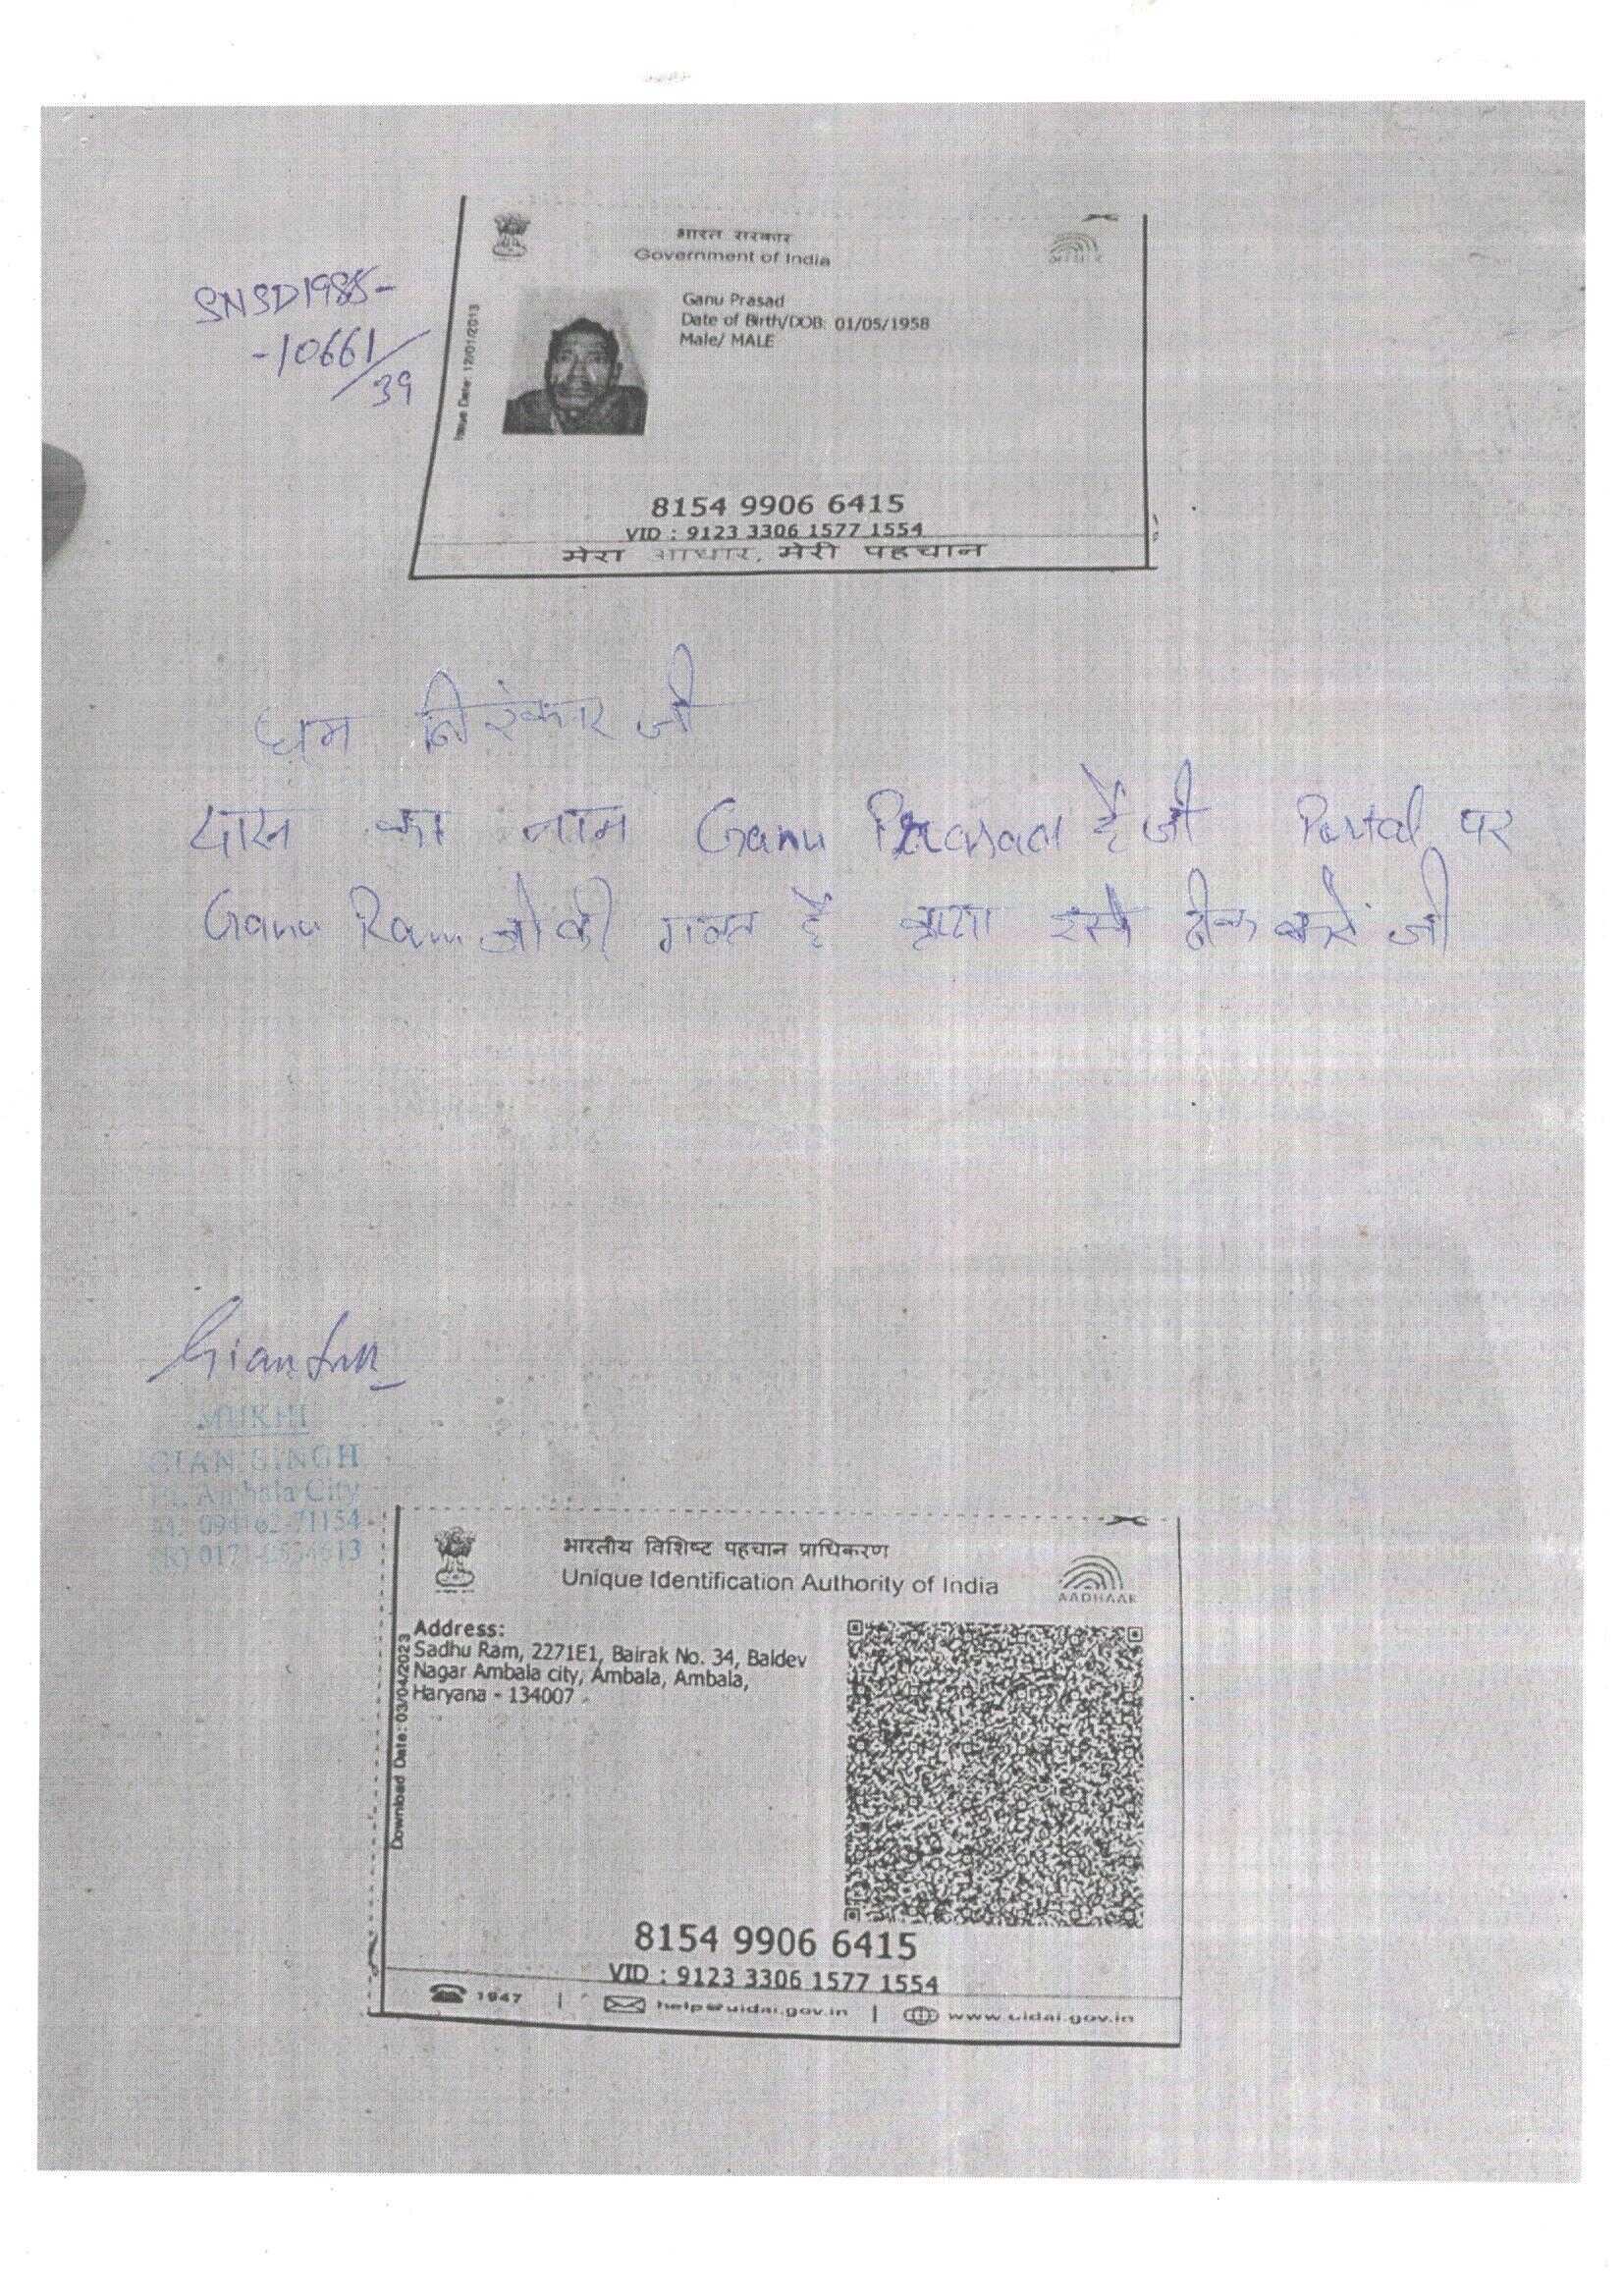 SNSD1985-
-10661/39
भारत सरकार
Government of India
Issue Date: 12/01/2013
Ganu Prasad
Date of Birth/DOB: 01/05/1958
Male/ MALE
8154 9906 6415
VID : 9123 3306 1577 1554
मेरा आधार, मेरी पहचान
धन निरंकार जी
दास का नाम Ganu Prasad है जी Portal पर
Ganu Ram जो की गलत है कृपा इसे ठीक करें जी
MUKHI
GIAN SINGH
Ambala City
भारतीय विशिष्ट पहचान प्राधिकरण
Unique Identification Authority of India
AADHAAR
Download Date: 03/04/2023
Address:
Sadhu Ram, 2271E1, Bairak No. 34, Baldev
Nagar Ambala city, Ambala, Ambala,
Haryana - 134007
8154 9906 6415
VID : 9123 3306 1577 1554
1947 | help@uidai.gov.in | www.uidai.gov.in